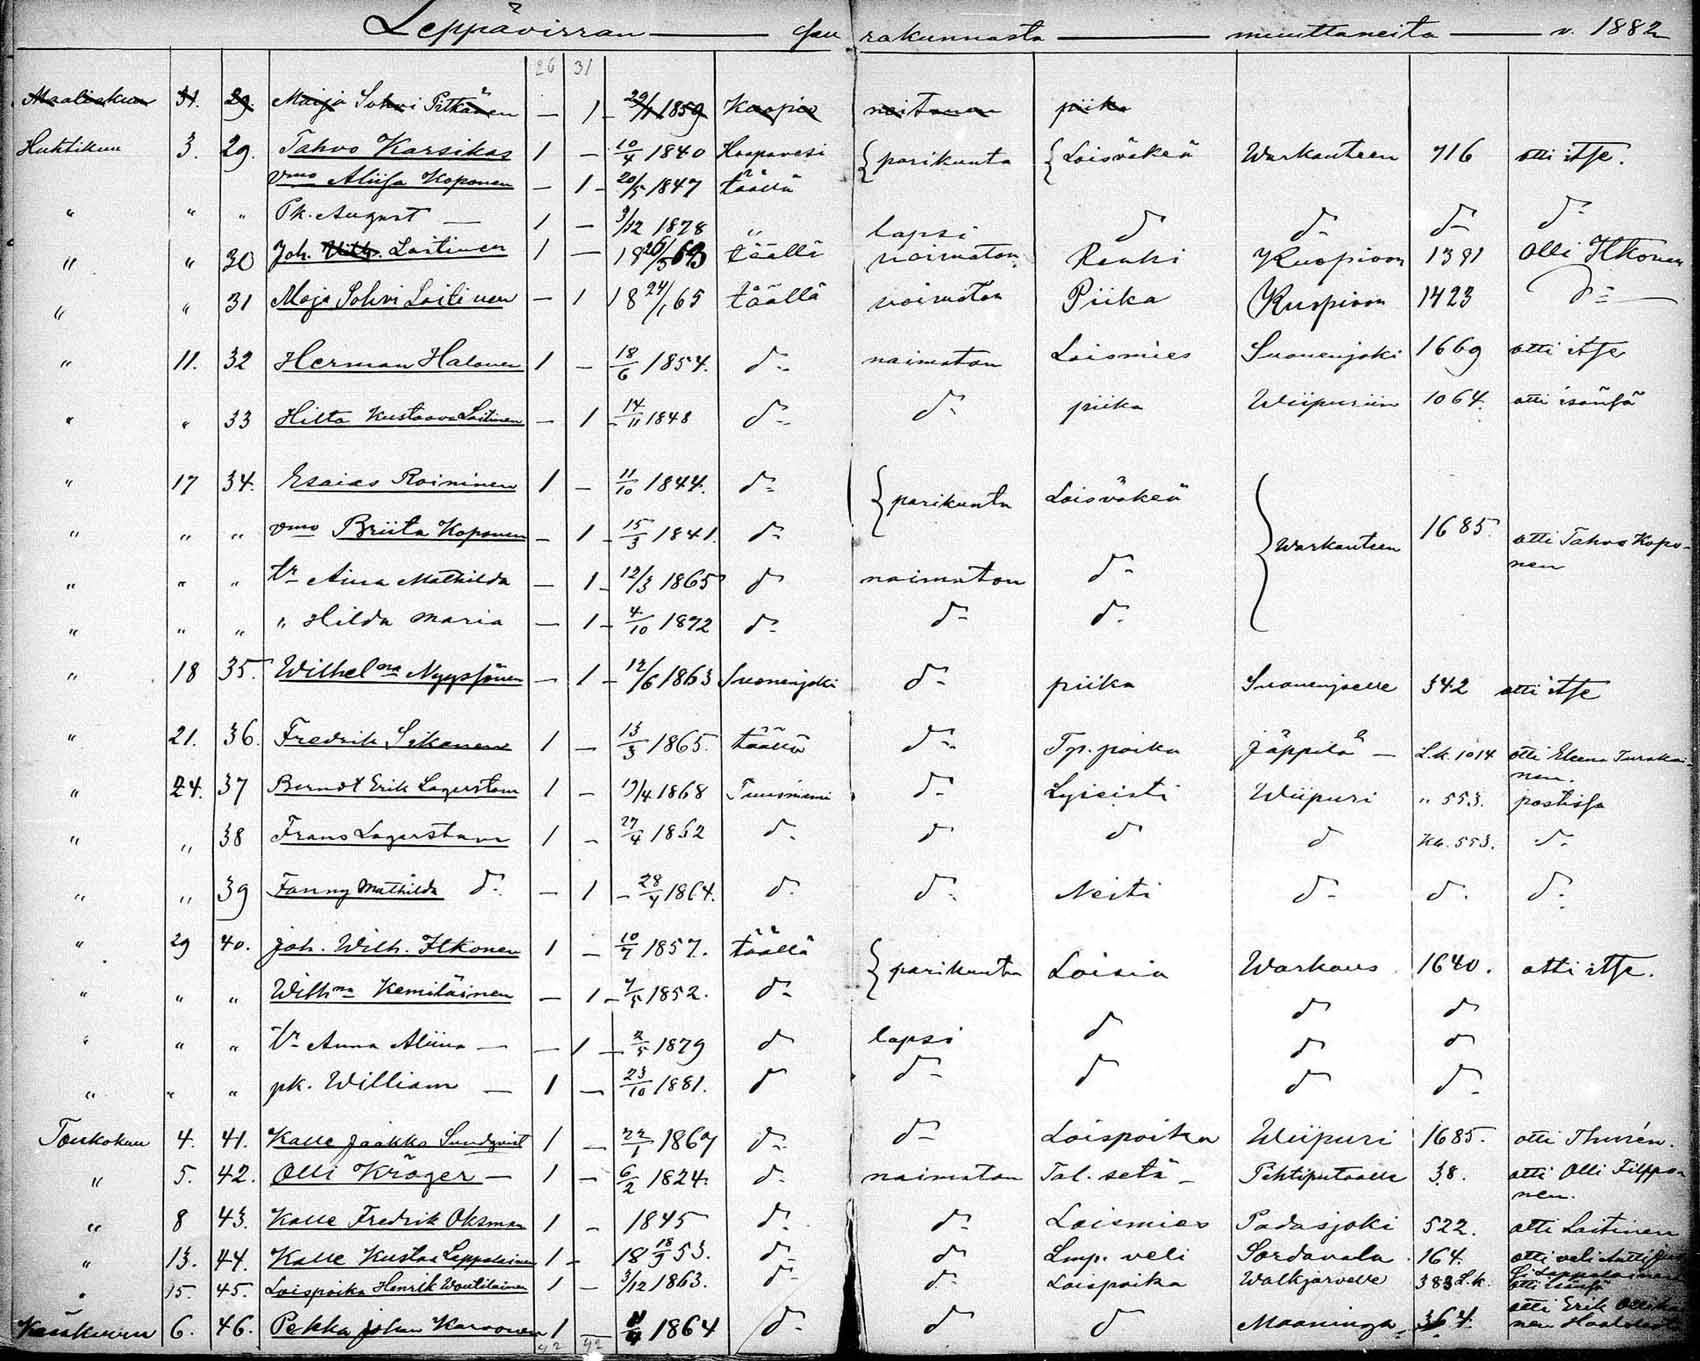 Leppävirran — seu rakunnasta — muuttaneita — v. 1882
26 31
Maaliskuu 31. 29. Maija Sohvi Pitkänen — 1 - 1859 Kuopio naitonen piika
Huhtikuu 3. 29. Tahvo Karsikas 1 — 10/4 1840 Haapavesi { parikunta { Loisväkeä Warkauteen 716 otti itse.
vmo Aliisa Koponen — 1 - 20/5 1847 täällä
" " " Pk. August — 1 — 3/12 1878 " lapsi d d- d- d-
" " 30 Joh. Wilh. Laitinen 1 — 18 26/5 63 täällä naimaton Renki Kuopioon 1381 Olli Itkonen
" " 31 Maja Sohvi Laitinen — 1 18 24/1 65 täällä naimaton Piika Kuopioon 1423 d:
" 11. 32 Herman Halonen 1 — 18/6 1854. d:- naimaton Loismies Suonenjoki 1669 otti itse
" " 33 Hilta Kustaava Laitinen — 1 - 14/11 1848 d:- d:- piika Wiipuriin 1064. otti isänsä
" 17 34. Esaias Roininen 1 — 11/10 1844. d:- { parikunta Loisväkeä
" " " vmo Briita Koponen — 1 - 15/3 1841. d:- { Warkauteen 1685. otti Tahvo Kopo-
nen
" " " tr Aina Mathilda — 1 - 12/3 1865 d naimaton d:-
" " " " Hilda Maria — 1 - 4/10 1872 d:- d:- d:-
" 18 35. Wilhelna Nyyssönen — 1 - 12/6 1863 Suonenjoki d:- piika Suonenjoelle 342 otti itse
" 21. 36. Fredrik Sikanen 1 — 13/3 1865. täällä d:- Tp. poika Jäppilä — L.k. 1014 otti Eleena Turakai-
nen.
" 24. 37 Berndt Erik Lagerstam 1 — 1868 Tuusniemi d:- Lyseisti Wiipuri " 553. postissa
" " 38 Frans Lagerstam 1 — 27/4 1862 d:- d d d Kk. 553. d:-
" " 39 Fanny Mathilda d:- — 1 - 28/4 1864. d:- d:- Neiti d:- d:- d:-
" 29 40. Joh. Wilh. Itkonen 1 — 10/7 1857. täällä { parikunta Loisia Warkaus 1640. otti itse.
" " " Wilhna Kemiläinen — 1 - 7/5 1852. d:- d d
" " " tr Anna Aliina — — 1 - 2/5 1879 d lapsi d d d
" " " pk. William — 1 — 23/10 1881. d d:- d d d:-
Toukokuu 4. 41. Kalle Jaakko Sundqvist 1 — 22/1 1867 d:- d:- Loispoika Wiipuri 1685. otti Thurén.
" 5. 42. Olli Kröger — 1 — 6/2 1824. d:- naimaton Tal. setä — Pihtiputaalle 38. otti Olli Filppo-
nen.
" 8 43. Kalle Fredrik Oksman 1 - 1845 d:- d:- Loismies Padasjoki 522. otti Laitinen
" 13. 44. Kalle Kustaa Leppäläinen 1 - 18 18/9 53. d:- d Lmp. veli Sordavala 164. otti veli Antti
" 15. 45. Loispoika Henrik Woutilainen 1 — 3/12 1863. d:- d:- Loispoika Walkjärvelle 383 L.k. otti
Kesäkuun 6. 46. Pekka Johan Karvonen 1 — 1864 d:- d d Maaninga 364. otti Erik
nen
42 42